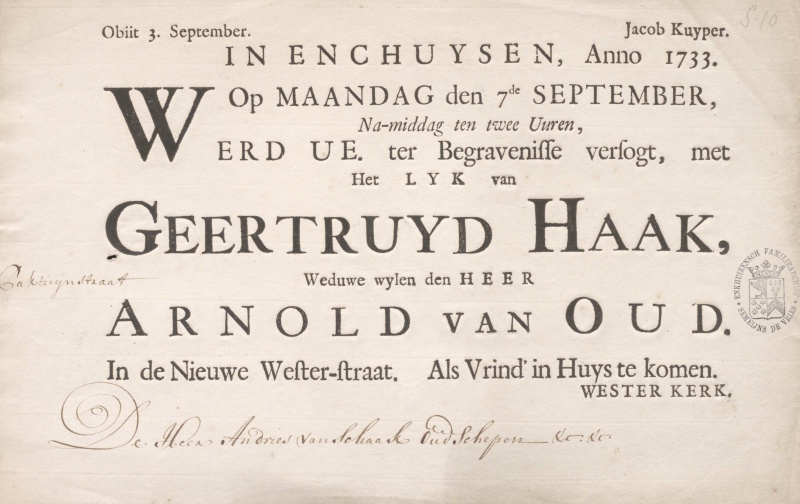 S. 10
Obiit 3. September. Jacob Kuyper.
IN ENCHUYSEN, Anno 1733.
Op MAANDAG den 7de SEPTEMBER,
Na-middag ten twee Uuren,
WERD UE. ter Begravenisse versogt, met
Het LYK van
GEERTRUYD HAAK,
Weduwe wylen den HEER
ARNOLD VAN OUD.
In de Nieuwe Wester-straat. Als Vrind' in Huys te komen.
WESTER KERK.
De Heer Andries van Schaak Oud Schepen &c: &c
ENKHUIZENSCH FAMILIEARCHIEF
SEMEIJNS DE VRIES